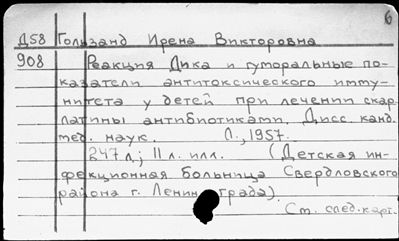 6
Д58 Голизанд Ирена Викторовна
908 Реакция Дика и гуморальные по-
казатели антитоксического имму-
нитета у детей при лечении скар-
латины антибиотиками. Дисс. канд.
мед. наук. Л., 1957.
247 л.; 11 л. илл. (Детская ин-
фекционная больница Свердловского
района г. Ленинграда)
См. след. карт.